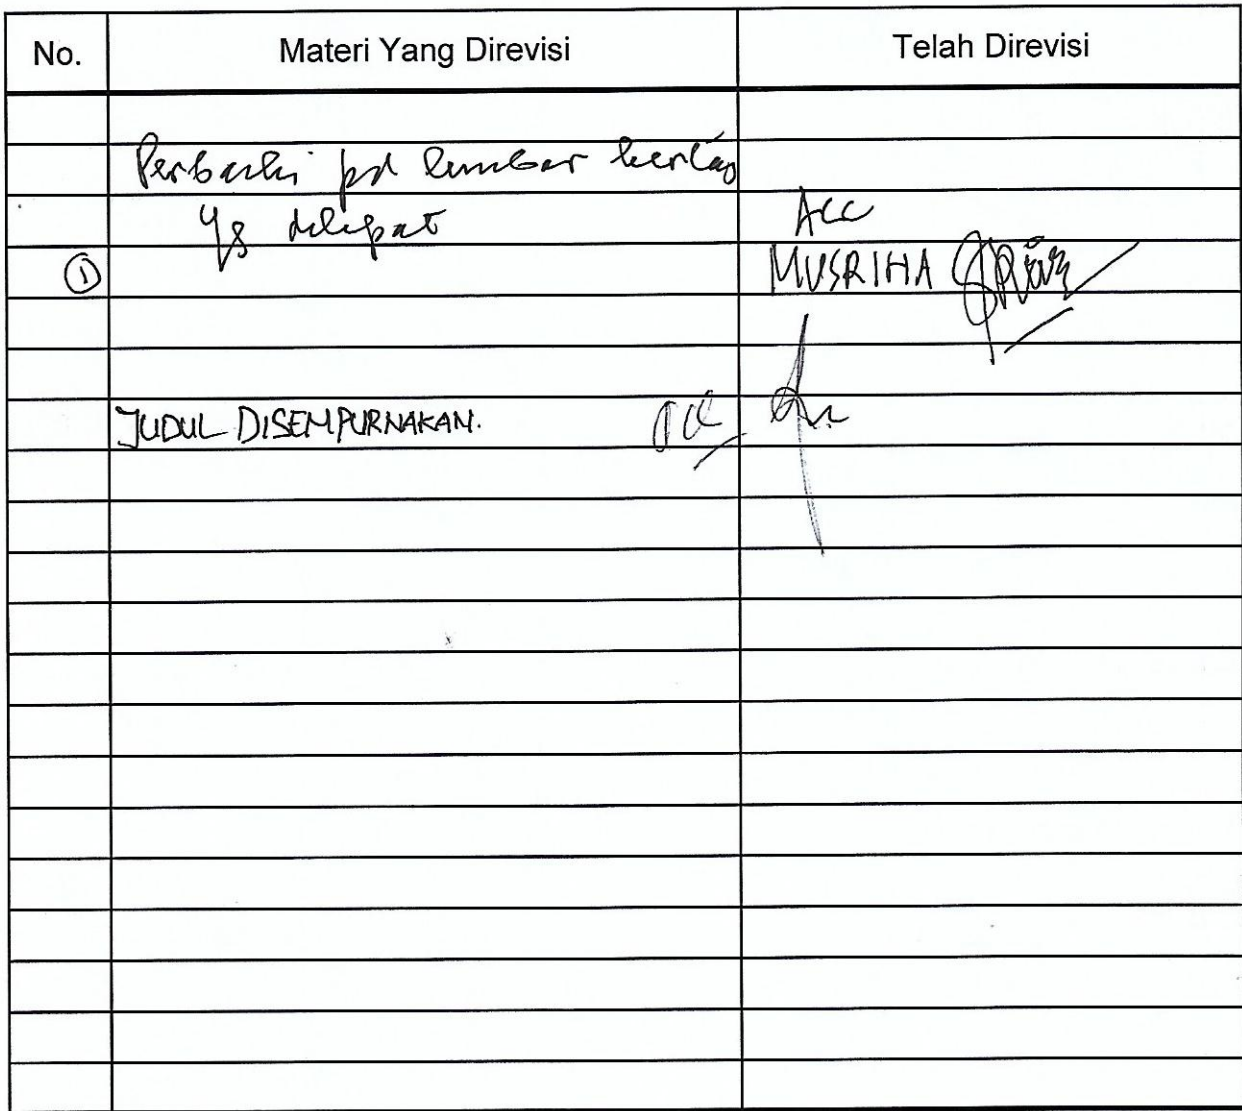 No. Materi Yang Direvisi Telah Direvisi
Perbaiki pd lembar kertas
yg dilipat
ACC
① MUSRIHA
JUDUL DISEMPURNAKAN.